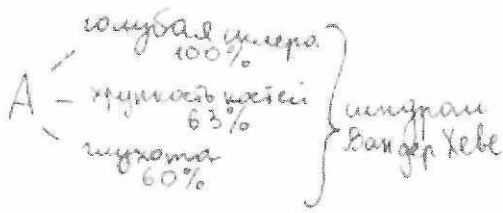 голубая склера
100%
А
хрупкость костей
63%
глухота
60%
синдром
Ван дер Хеве